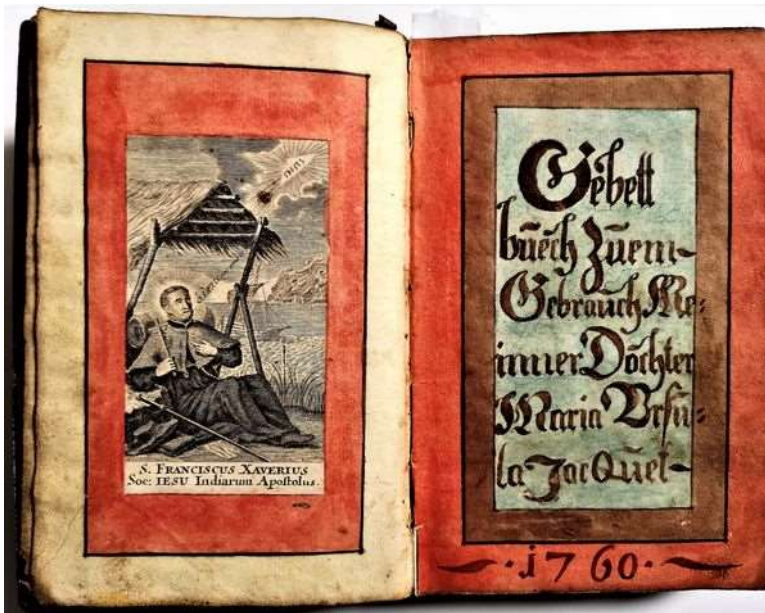 S. FRANCISCUS XAVERIUS
Soc: IESU Indiarum Apostolus.
Gebett
buech Zuem-
Gebrauch Me:
inner Dochter
Maria Vrsu:
la JacQuet-
·1760·